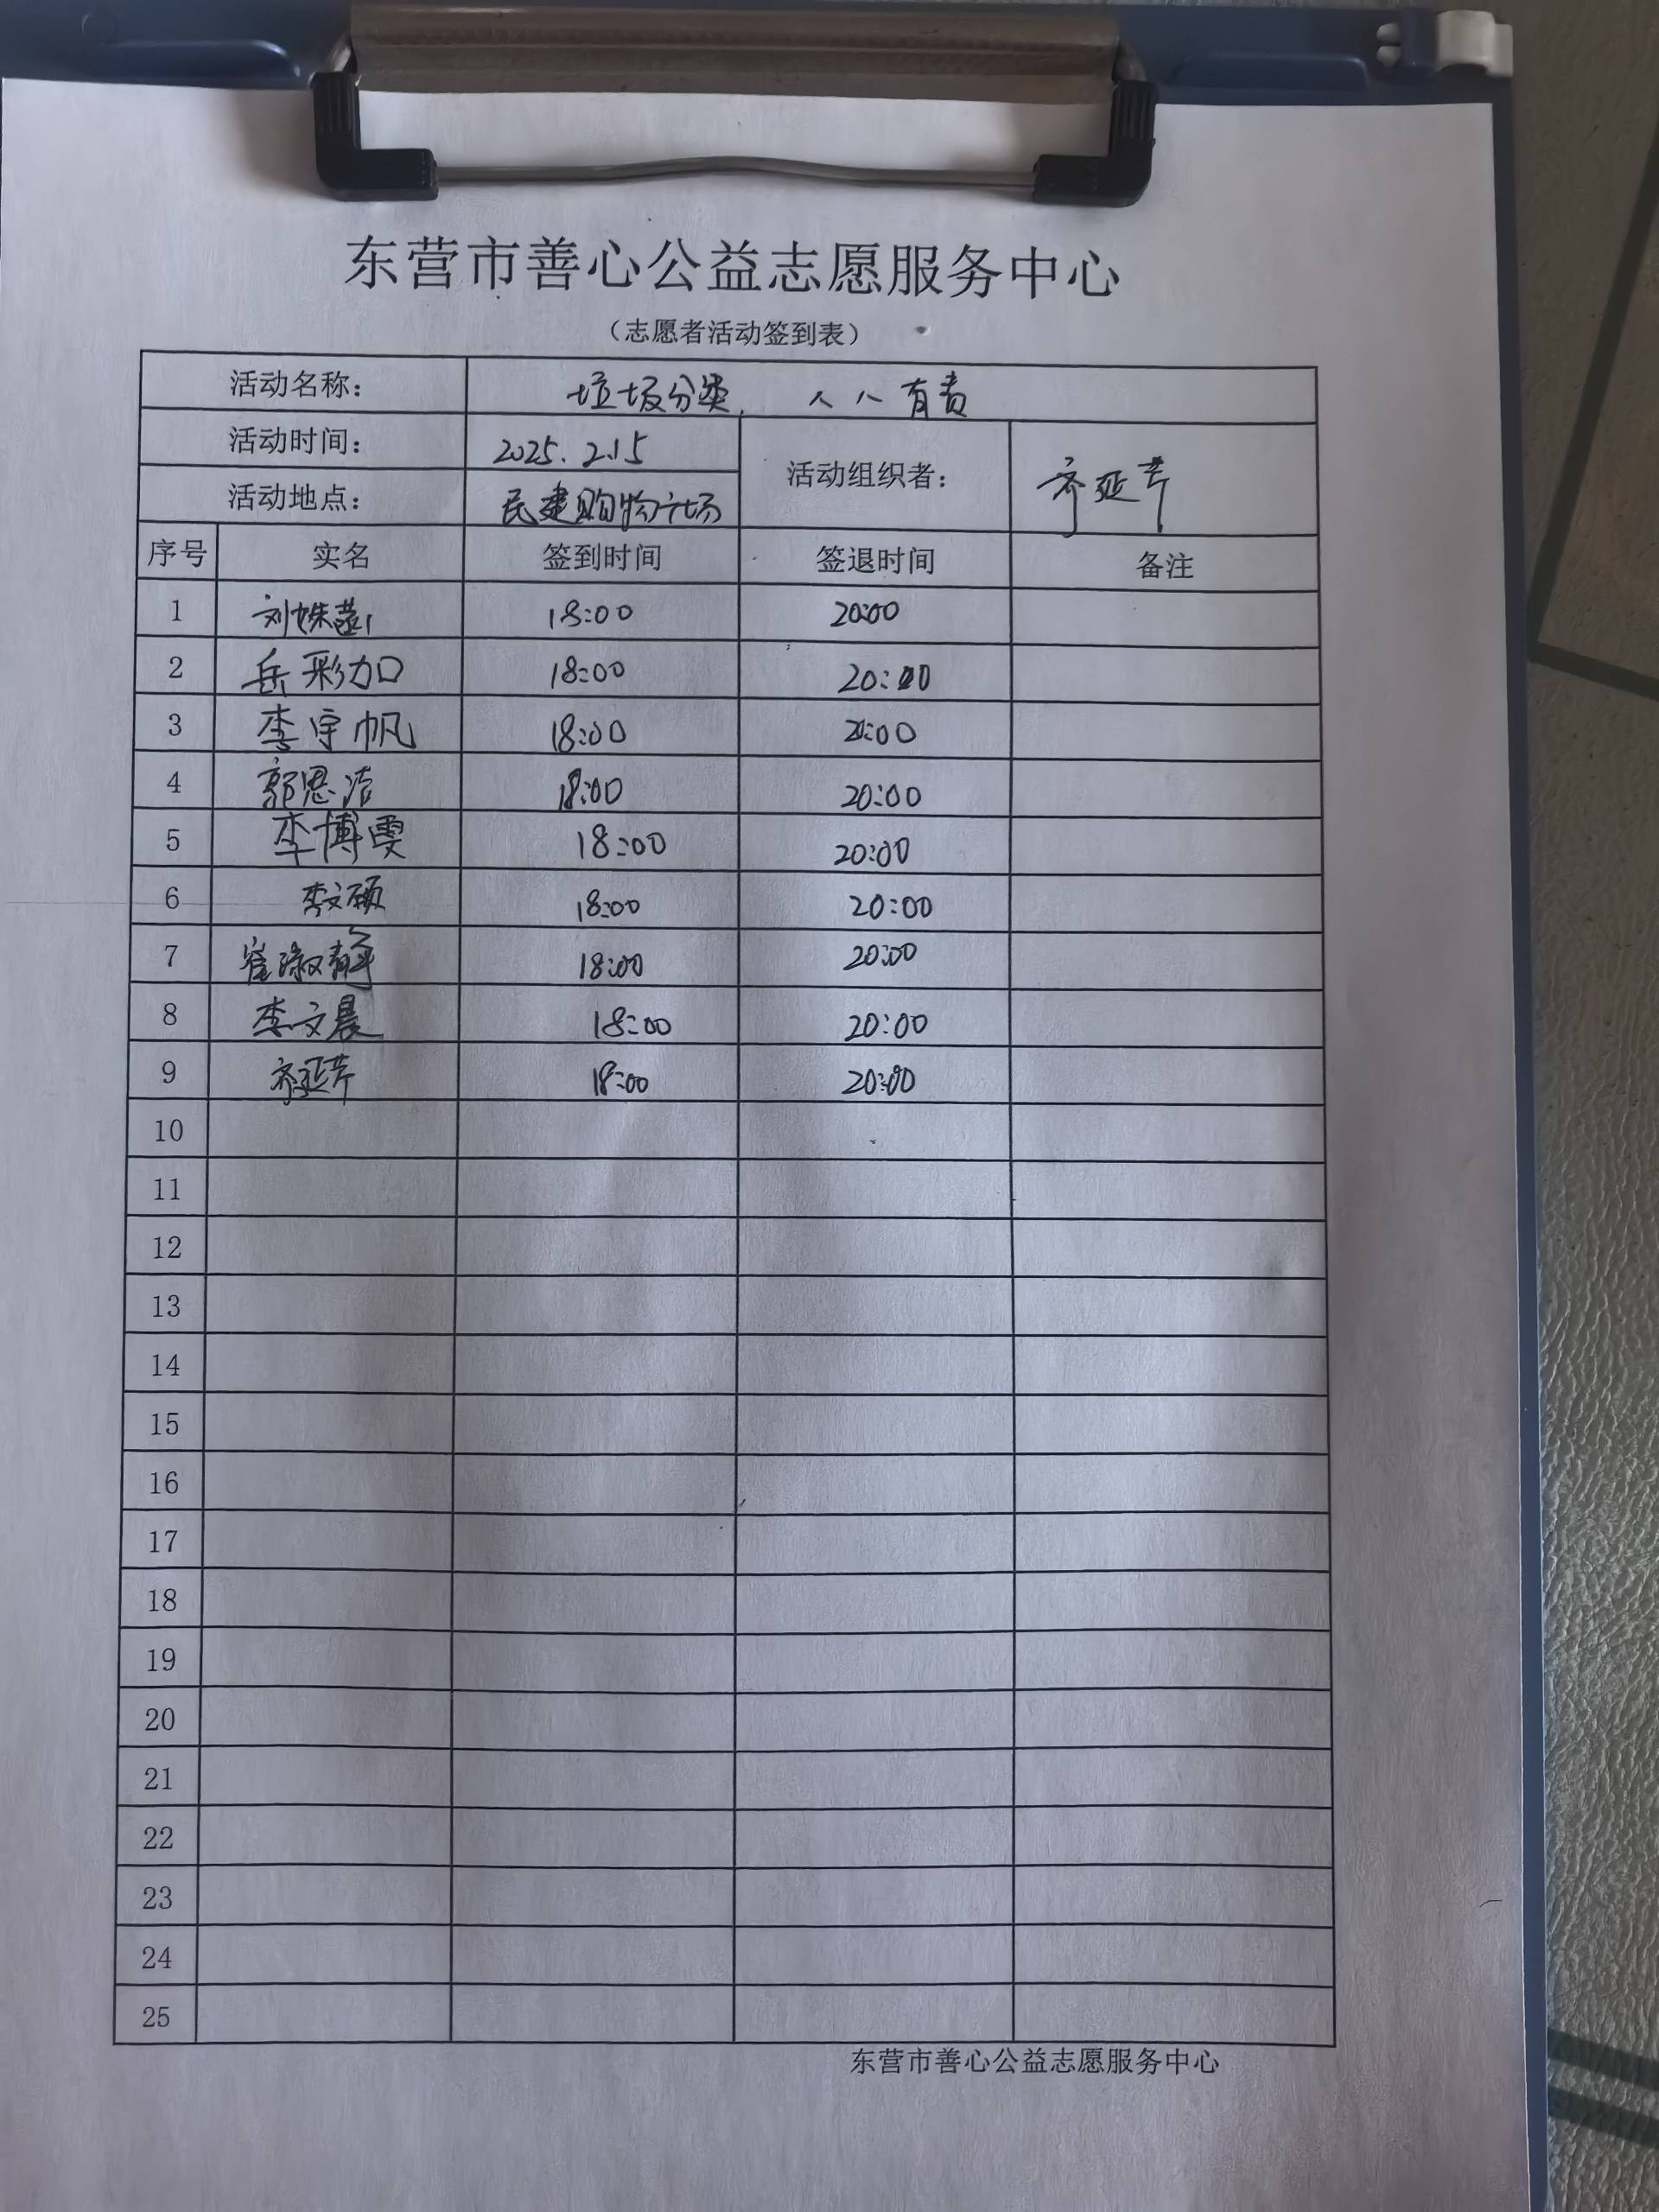 东营市善心公益志愿服务中心
（志愿者活动签到表）
活动名称： 垃圾分类， 人人有责
活动时间： 2025.2.15
活动组织者： 齐延芹
活动地点： 民建购物广场
序号 实名 签到时间 签退时间 备注
1 刘姝 18:00 20:00
2 岳彩加 18:00 20:00
3 李宇帆 18:00 20:00
4 郭恩洁 18:00 20:00
5 李博雯 18:00 20:00
6 李文硕 18:00 20:00
7 崔淑静 18:00 20:00
8 李文晨 18:00 20:00
9 齐延芹 18:00 20:00
10
11
12
13
14
15
16
17
18
19
20
21
22
23
24
25
东营市善心公益志愿服务中心